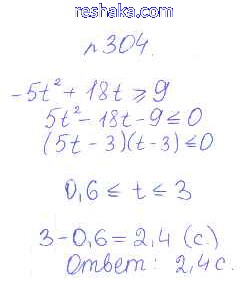 reshaka.com
№304.
-5t² + 18t ≥ 9
5t² - 18t - 9 ≤ 0
(5t - 3)(t - 3) ≤ 0
0,6 ≤ t ≤ 3
3 - 0,6 = 2,4 (с.)
Ответ: 2,4 с.